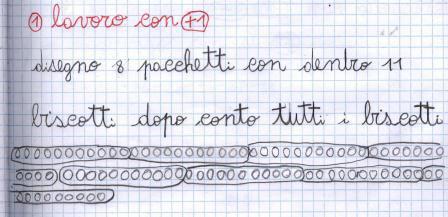 ① lavoro con +1
disegno 8 pacchetti con dentro 11
biscotti dopo conto tutti i biscotti